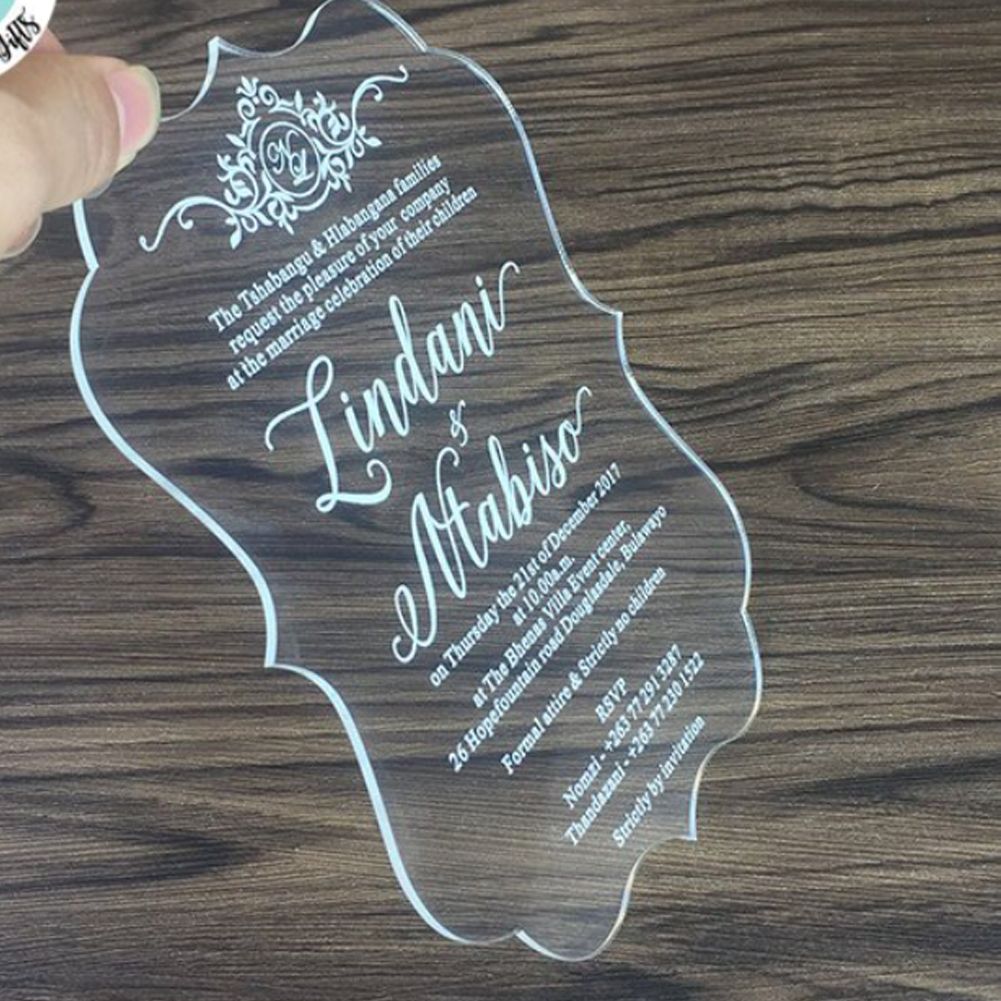 Gifts
NL
The Tshabangu & Hlabangana families
request the pleasure of your company
at the marriage celebration of their children
Lindani
&
Ntabiso
on Thursday the 21st of December 2017
at 10.00a.m.
at The Bhenas Villa Event center,
26 Hopefountain road Douglasdale, Bulawayo
Formal attire & Strictly no children
RSVP
Nomzi - +263 77 291 3287
Thandazani - +263 77 230 1522
Strictly by invitation